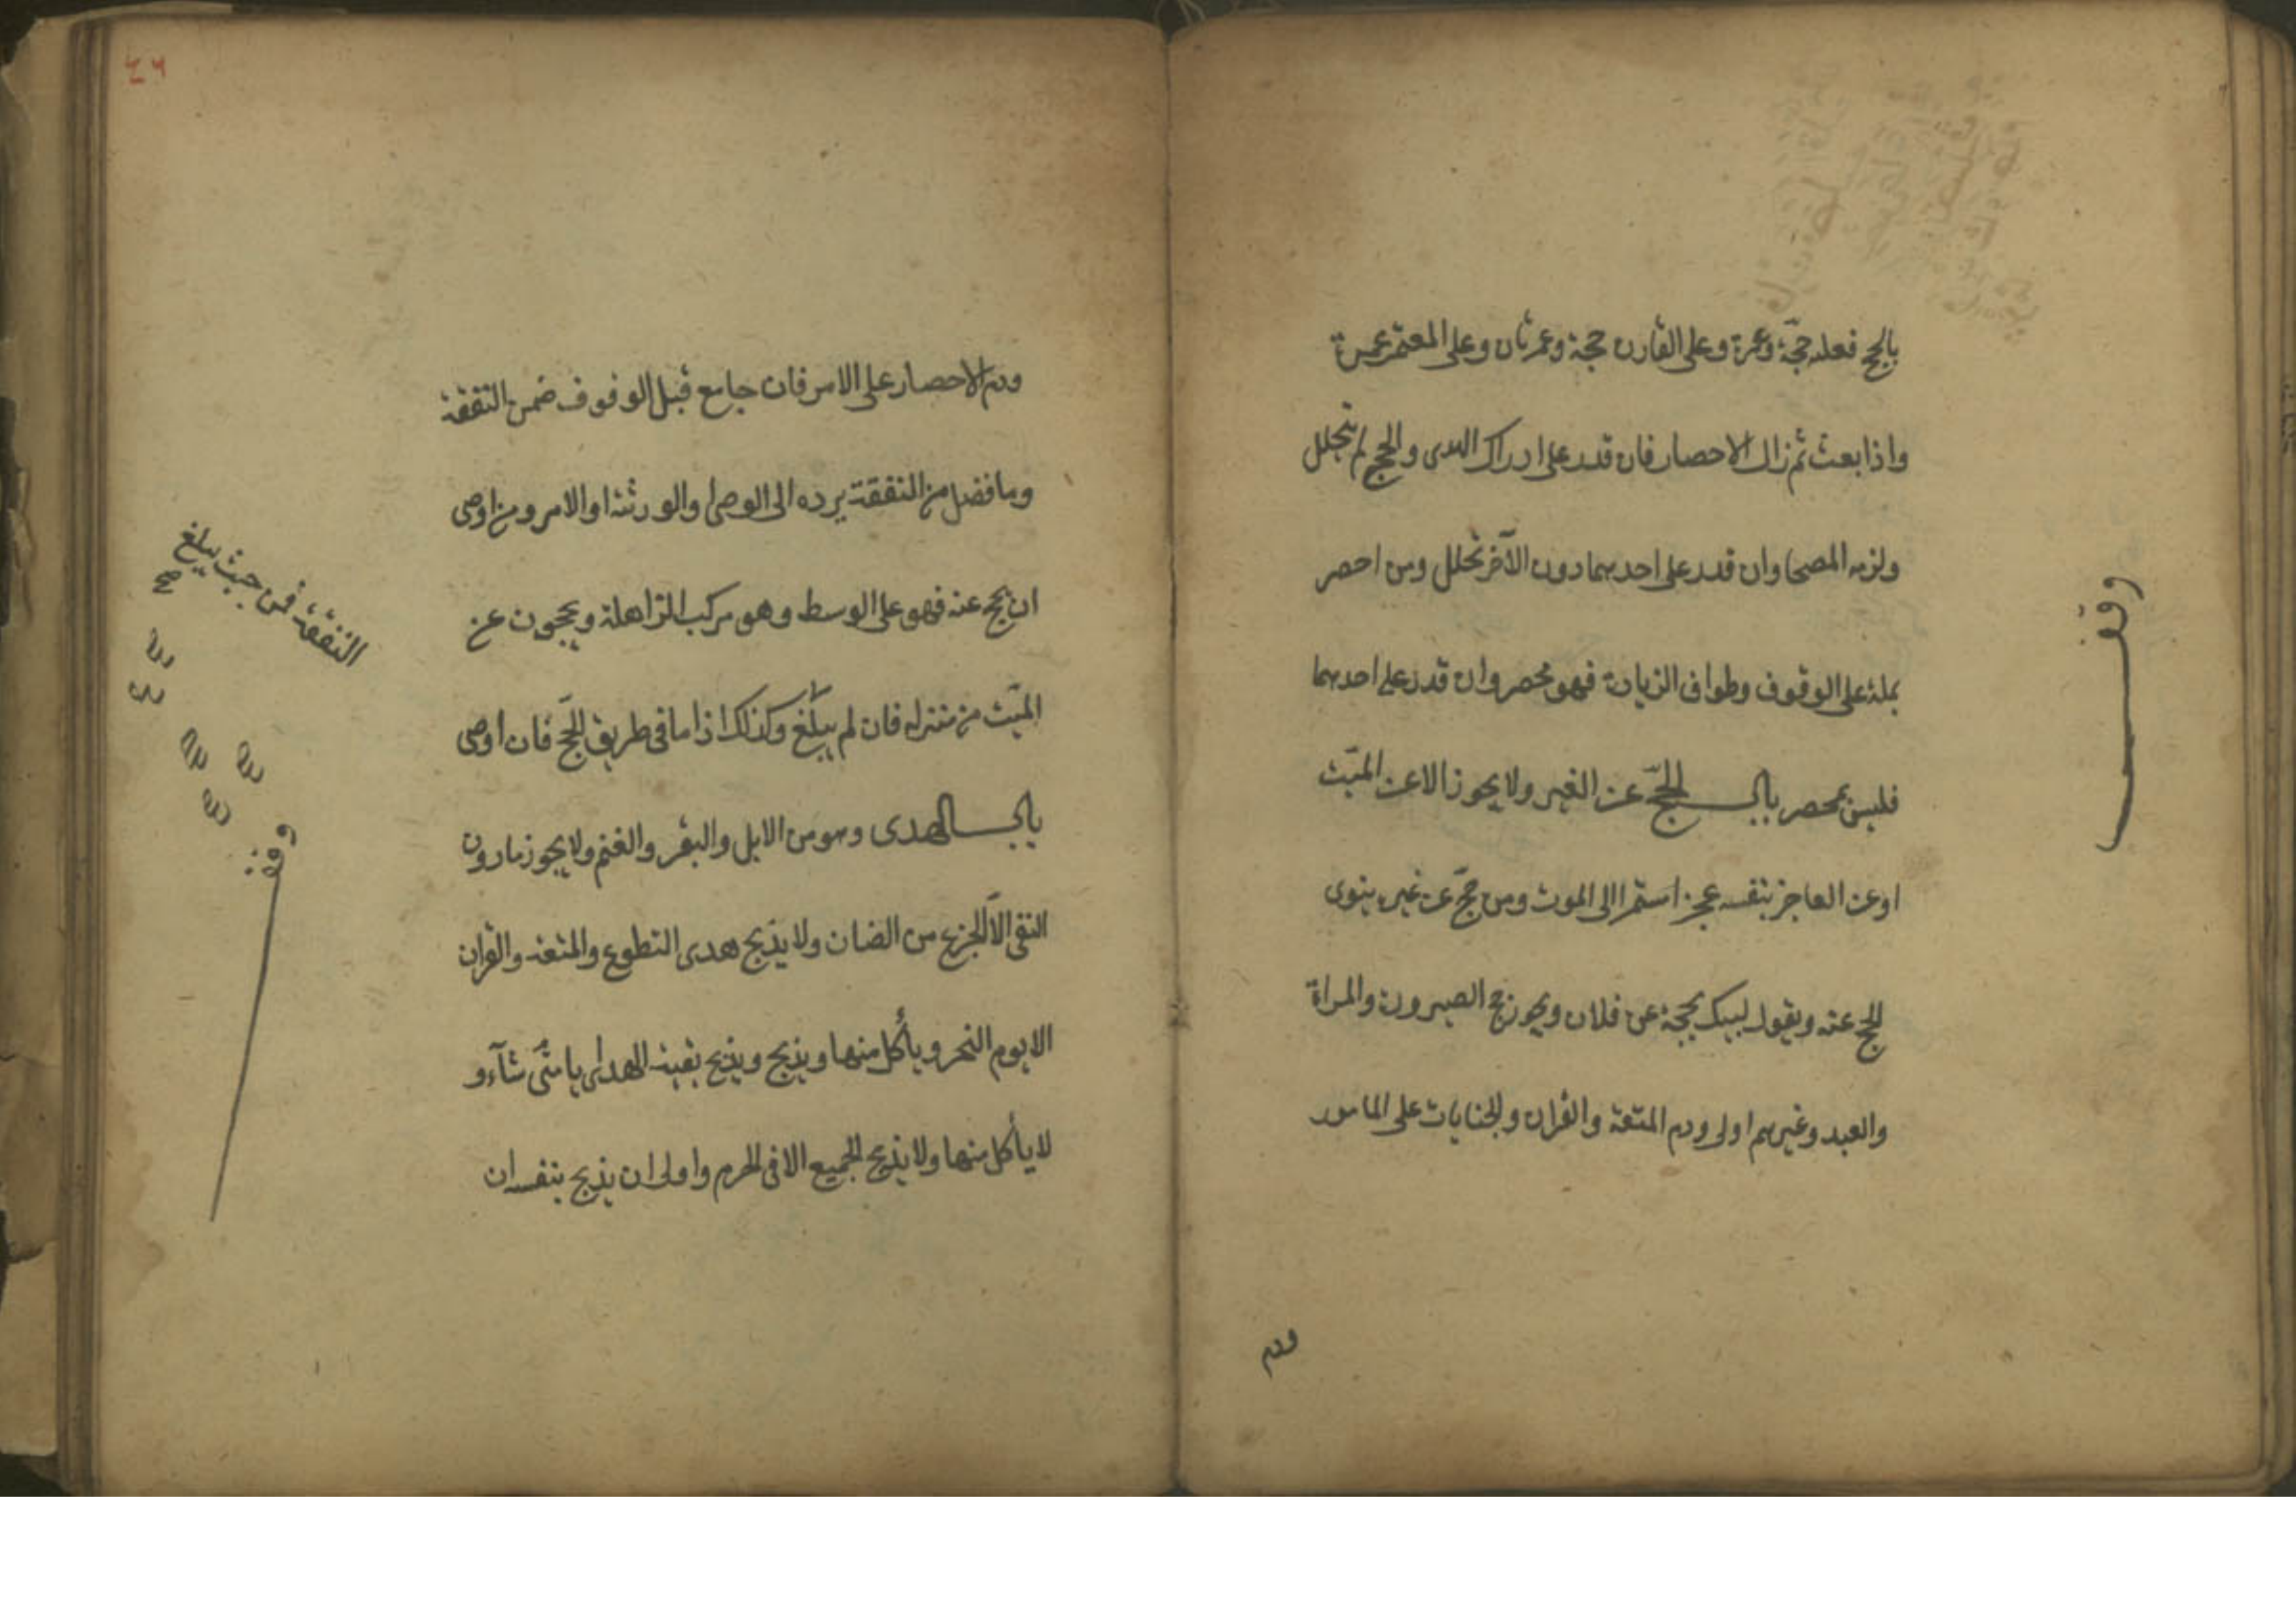 بالحج فعليه حجّة وعمرة وعلى القارن حجة وعمرتان وعلى المعتمر عمرة
واذا بعث ثم زال الاحصار فان قدر على ادراك الهدى والحج لم يتحلل
ولزمه المضى وان قدر على احدهما دون الآخر تحلل ومن احصر
بمكة على الوقوف وطواف الزيارة فهو محصر وان قدر على احدهما
فليس بمحصر باب الحجّ عن الغير ولا يجوز الا عن الميّت
او عن العاجز بنفسه عجزا استمر الى الموت ومن حجّ عن غيره ينوى
الحج عنه ويقول لبيك بحجة عن فلان ويجوز حج الصيرورة والمراة
والعبد وغيرهم اولى ودم المتعة والقران والجنايات على المامور
ودم
وقف
٤٦
ودم الاحصار على الامر فان جامع قبل الوقوف ضمن النفقة
وما فضل من النفقة يرده الى الوصى او الورثة او الامر ومن اوصى
ان يحج عنه فهو على الوسط وهو مركب الزاهلة ويحجون عن
الميّت من منزله فان لم يبلغ وكذلك اذا ما فى طريق الحجّ فان اوصى
باب الهدى وهو من الابل والبقر والغنم ولا يجوز مادون
الثنى الّا الجزع من الضان ولا يذبح هدى التطوع والمتعة والقران
الا يوم النحر وياكل منها ويذبح ويذبح بقية الهدايا متى شآء و
لا ياكل منها ولا يذبح الجميع الا فى الحرم واولى ان يذبح بنفسه ان
النفقة فمن حيث يبلغ
صح
وقف